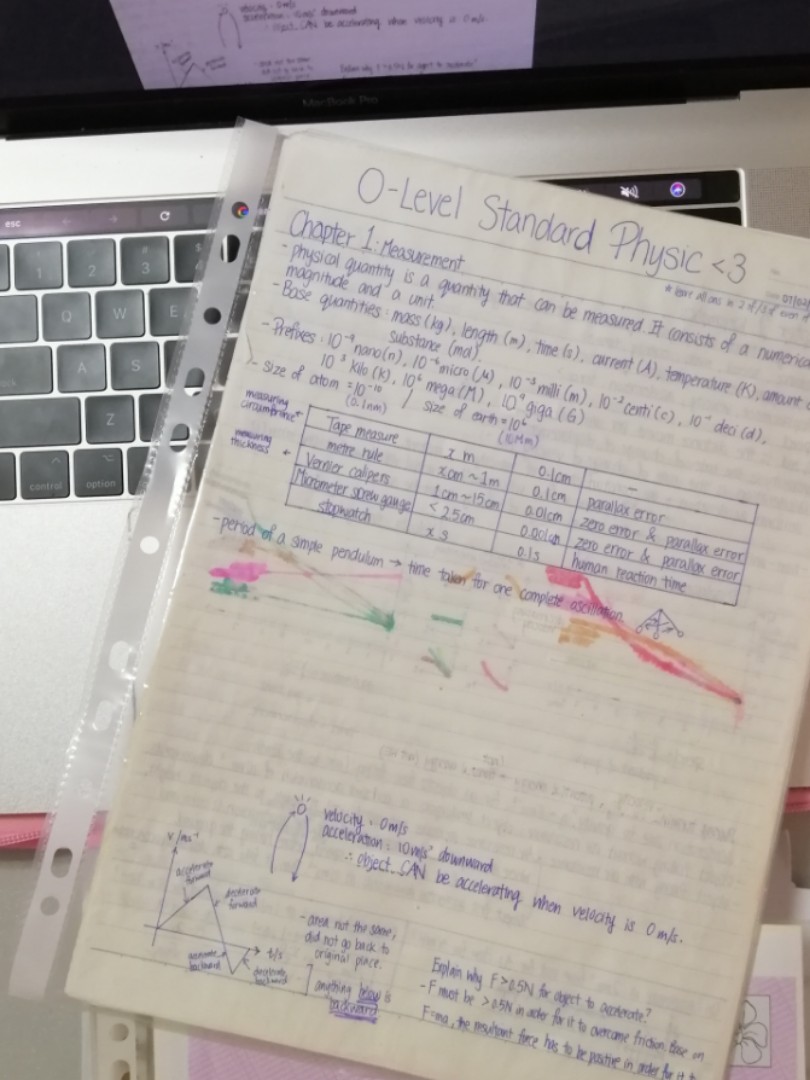 velocity : 0m/s
acceleration : 10m/s² downward
∴ object CAN be accelerating when velocity is 0m/s.
MacBook Pro
esc
1
2
3
Q
W
E
A
S
Z
control
option
O-Level Standard Physic <3
Chapter 1: Measurement
- physical quantity is a quantity that can be measured. It consists of a numerical
magnitude and a unit.
- Base quantities : mass (kg), length (m), time (s), current (A), temperature (K), amount
substance (mol).
- Prefixes : 10⁻⁹ nano (n), 10⁻⁶ micro (μ), 10⁻³ milli (m), 10⁻² centi (c), 10⁻¹ deci (d),
10³ kilo (k), 10⁶ mega (M), 10⁹ giga (G)
- size of atom = 10⁻¹⁰ / size of earth = 10⁶
(0.1nm)
measuring
circumference
Tape measure x m 0.1cm -
metre rule xcm ~ 1m 0.1cm parallax error
measuring
thickness
Vernier calipers 1cm ~ 15cm 0.01cm zero error & parallax error
Micrometer screw gauge < 2.5cm 0.001cm zero error & parallax error
stopwatch x s 0.1s human reaction time
- period of a simple pendulum → time taken for one complete oscillation
velocity : 0m/s
acceleration : 10m/s² downward
∴ object CAN be accelerating when velocity is 0m/s.
v/ms⁻¹
accelerate
forward
decelerate
forward
t/s
accelerate
backward
decelerate
backward
- area not the same,
did not go back to
original place.
anything below is
backward
Explain why F > 0.5N for object to accelerate?
- F must be > 0.5N in order for it to overcome friction. Base on
F=ma, the resultant force has to be positive in order for it to